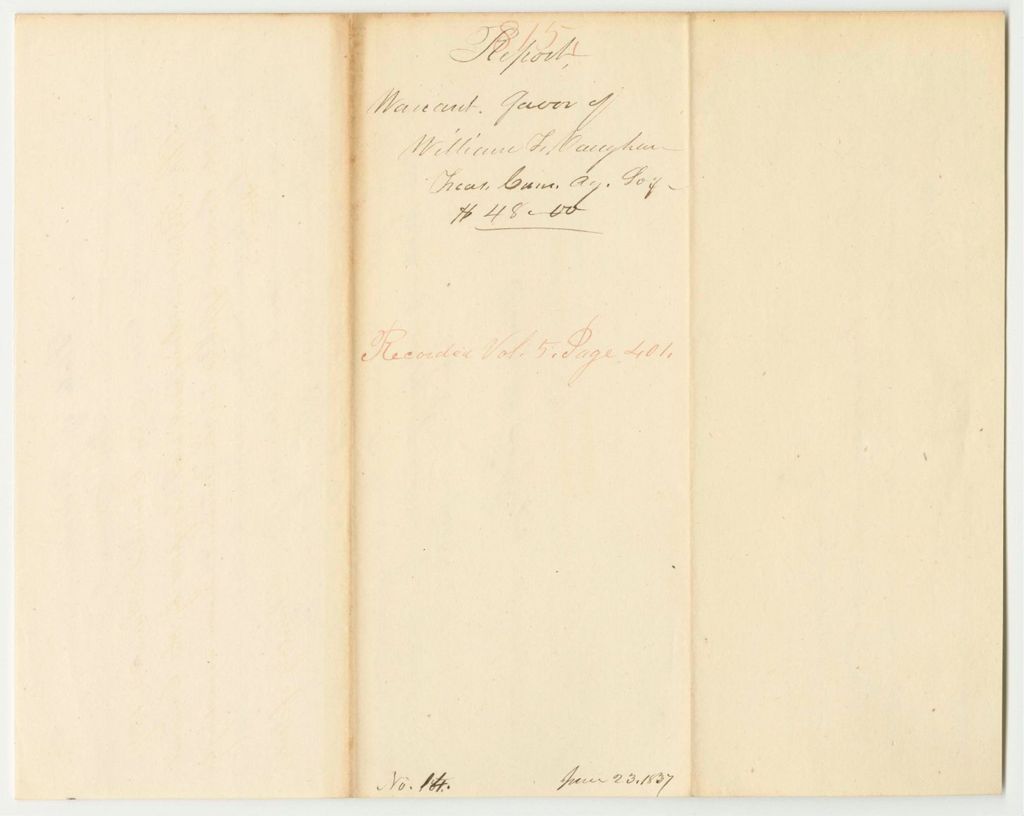 815.
Report,
Warrant. favor of
William F. Vaughan
Treas. Cum. Ag. Soy
$48-00
Recorded Vol. 5. Page 401.
No. 14. June 23. 1837